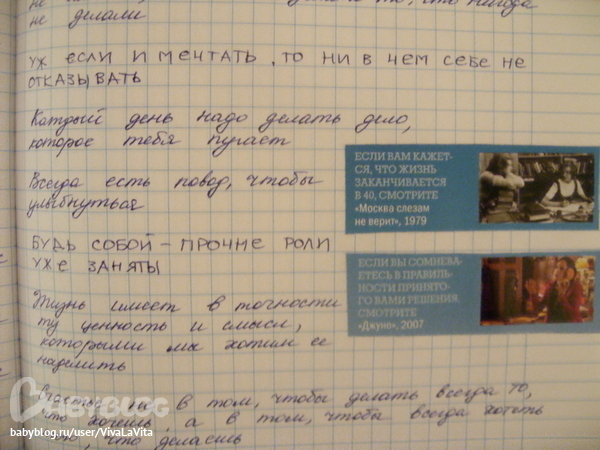 то, что никогда
не делали
уж если и мечтать, то ни в чем себе не
отказывать
Каждый день надо делать дело,
которое тебя пугает
Всегда есть повод, чтобы
улыбнуться
БУДЬ СОБОЙ – ПРОЧИЕ РОЛИ
УЖЕ ЗАНЯТЫ
Жизнь имеет в точности
ту ценность и смысл,
которыми мы хотим ее
наделить
Счастье не в том, чтобы делать всегда то,
что хочешь, а в том, чтобы всегда хотеть
того, что делаешь
ЕСЛИ ВАМ КАЖЕТ-
СЯ, ЧТО ЖИЗНЬ
ЗАКАНЧИВАЕТСЯ
В 40, СМОТРИТЕ
«Москва слезам
не верит», 1979
ЕСЛИ ВЫ СОМНЕВА-
ЕТЕСЬ В ПРАВИЛЬ-
НОСТИ ПРИНЯТО-
ГО ВАМИ РЕШЕНИЯ,
СМОТРИТЕ
«Джуно», 2007
BABYBLOG
babyblog.ru/user/VivaLaVita